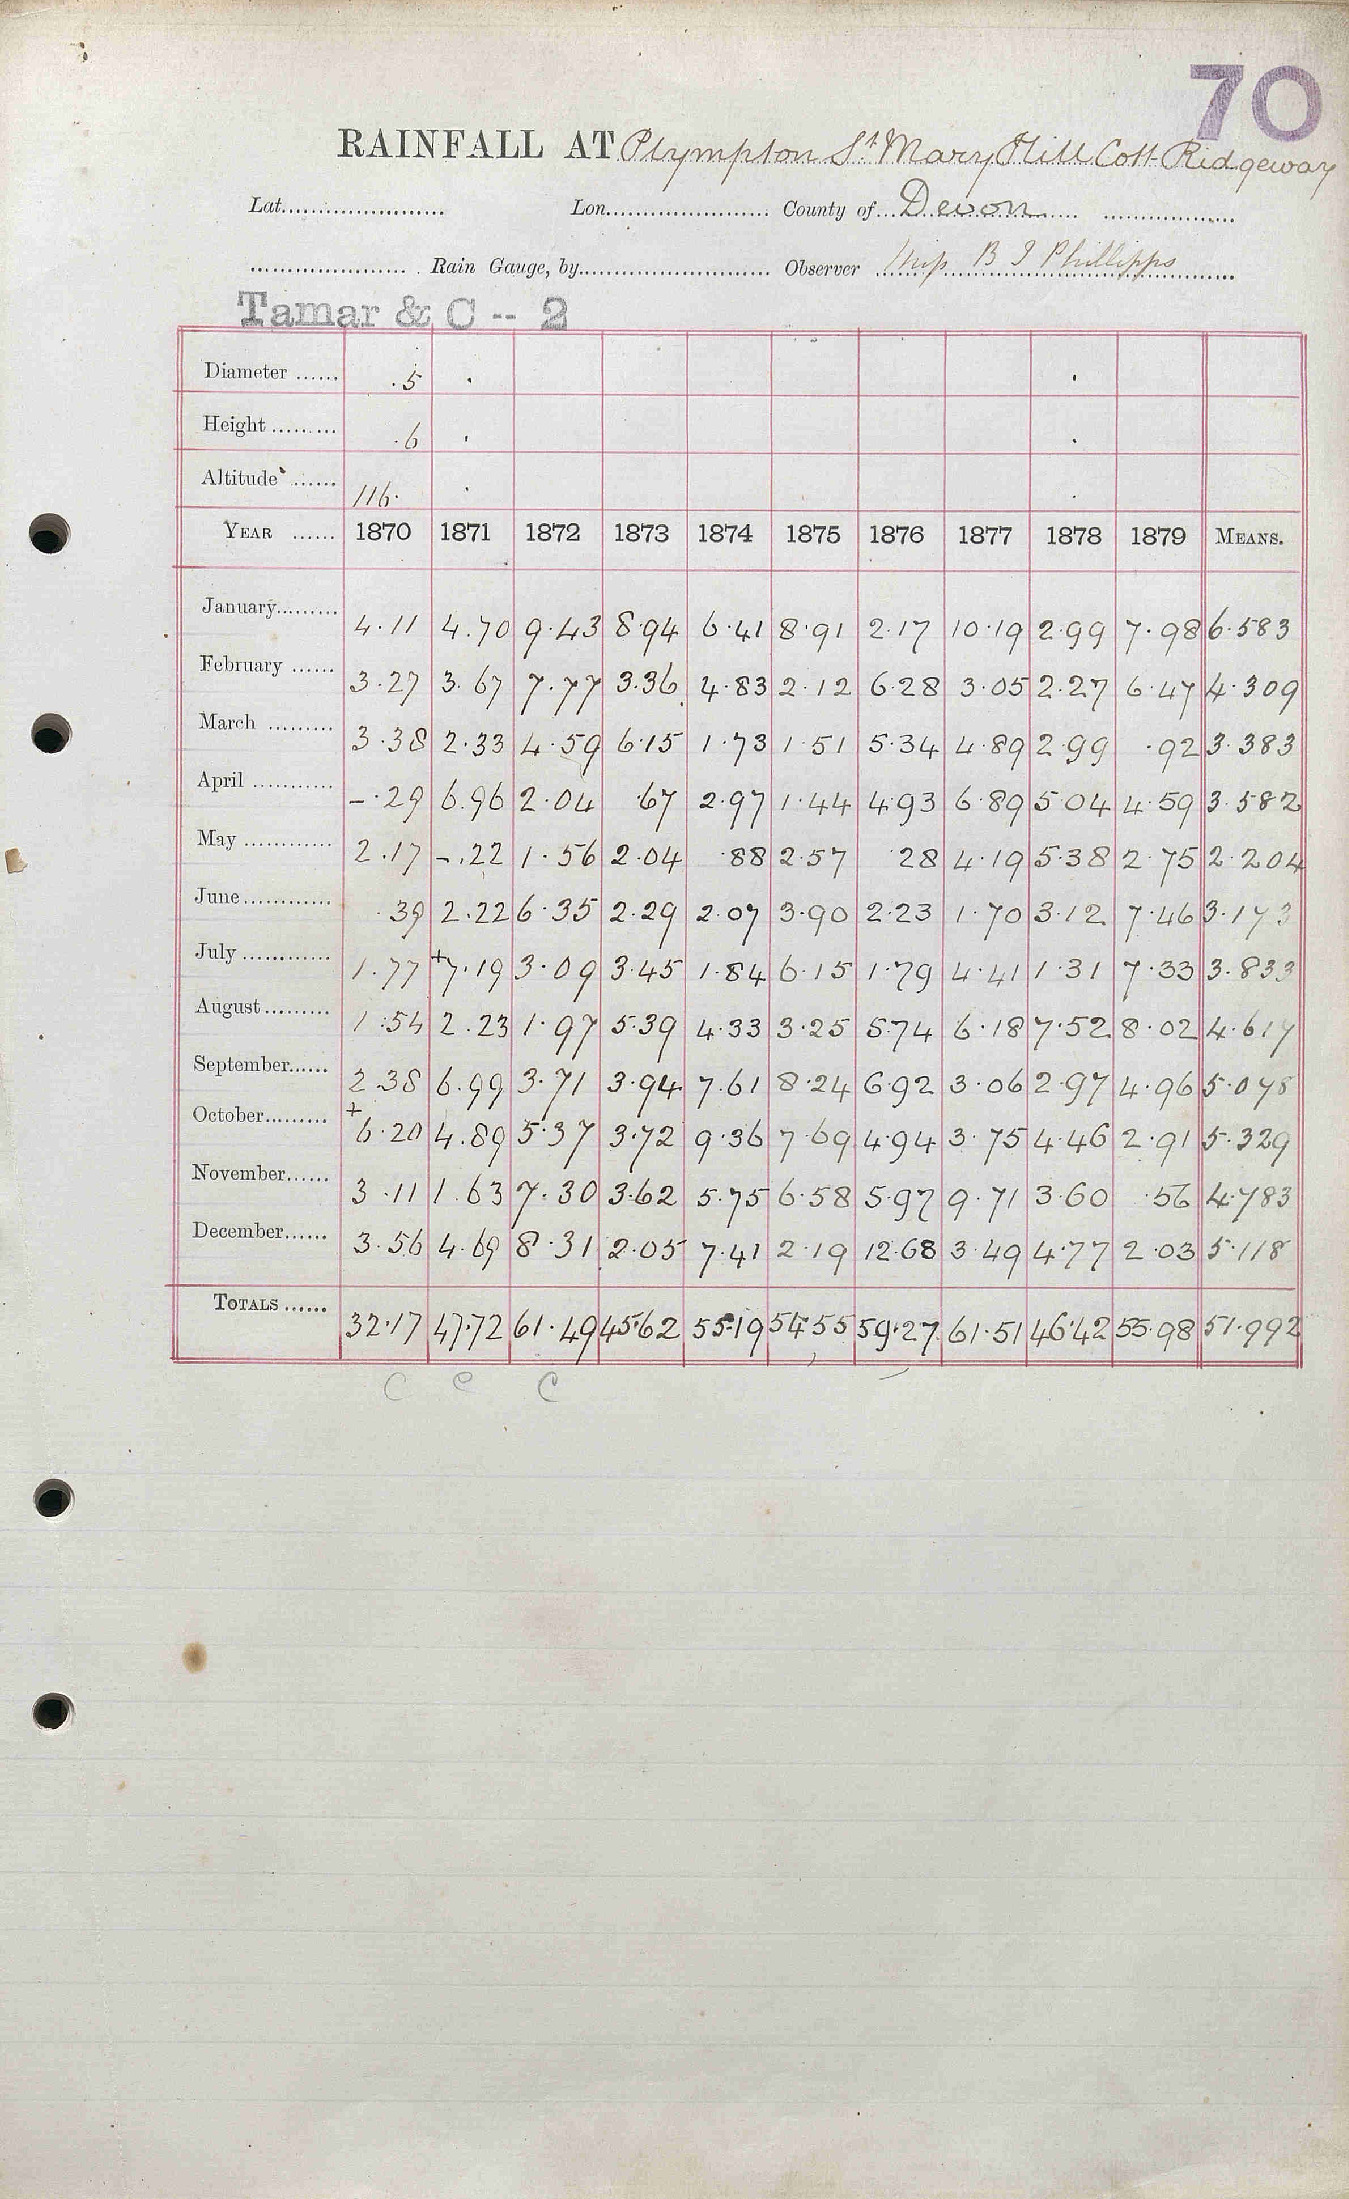 70
RAINFALL AT Plympton St Mary Hill Cott Ridgeway
Lat. Lon. County of Devon
Rain Gauge, by Observer Miss B J Phillipps
Tamar & C -- 2
Diameter ...... .5
Height ......... .6
Altitude ...... 116.
YEAR ...... 1870 1871 1872 1873 1874 1875 1876 1877 1878 1879 MEANS.
January......... 4.11 4.70 9.43 8.94 6.41 8.91 2.17 10.19 2.99 7.98 6.583
February ...... 3.27 3.67 7.77 3.36 4.83 2.12 6.28 3.05 2.27 6.47 4.309
March ......... 3.38 2.33 4.59 6.15 1.73 1.51 5.34 4.89 2.99 .92 3.383
April ........... -.29 6.96 2.04 .67 2.97 1.44 4.93 6.89 5.04 4.59 3.582
May ............ 2.17 -.22 1.56 2.04 .88 2.57 28 4.19 5.38 2.75 2.204
June............ .39 2.22 6.35 2.29 2.07 3.90 2.23 1.70 3.12 7.46 3.173
July ............ 1.77 +7.19 3.09 3.45 1.84 6.15 1.79 4.41 1.31 7.33 3.833
August......... 1.54 2.23 1.97 5.39 4.33 3.25 5.74 6.18 7.52 8.02 4.617
September...... 2.38 6.99 3.71 3.94 7.61 8.24 6.92 3.06 2.97 4.96 5.078
October......... +6.20 4.89 5.37 3.72 9.36 7.69 4.94 3.75 4.46 2.91 5.329
November...... 3.11 1.63 7.30 3.62 5.75 6.58 5.97 9.71 3.60 .56 4.783
December...... 3.56 4.69 8.31 2.05 7.41 2.19 12.68 3.49 4.77 2.03 5.118
TOTALS ...... 32.17 47.72 61.49 45.62 55.19 54.55 59.27 61.51 46.42 55.98 51.992
C C C